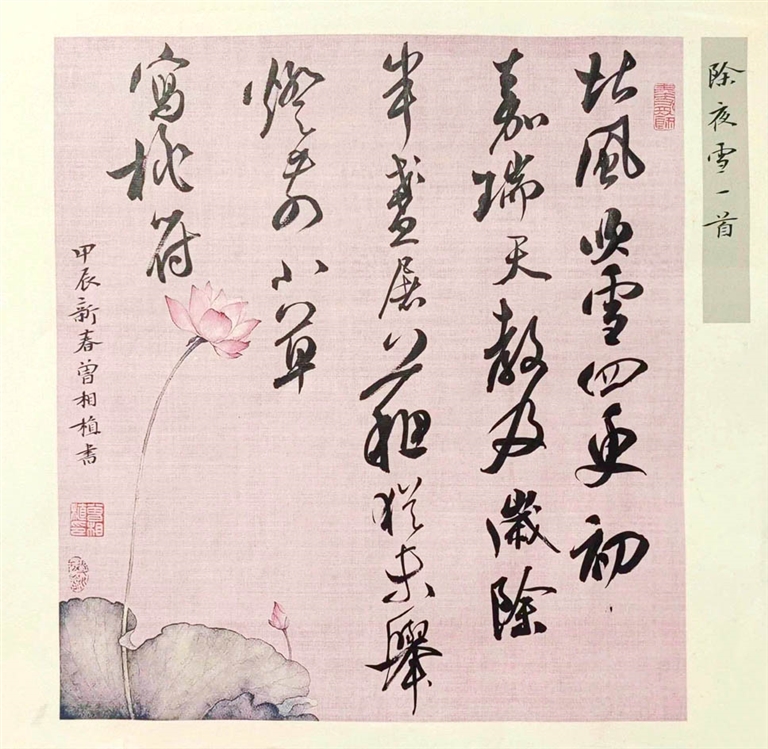 除夜雪一首
北風吹雪四更初
嘉瑞天教及歲除
半盞屠蘇猶未舉
燈前小草
寫桃符
甲辰新春曾相植書
曾相植印